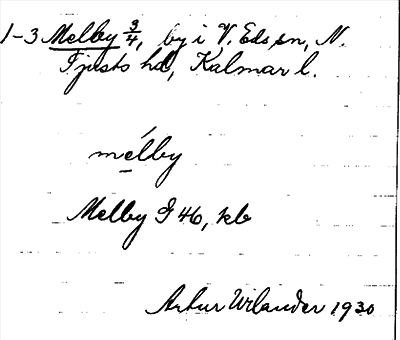 1-3 Melby 3/4, by i V. Eds sn, N.
Tjusts hd, Kalmar l.
mélby
Melby G 46, kb
Artur Wilander 1930